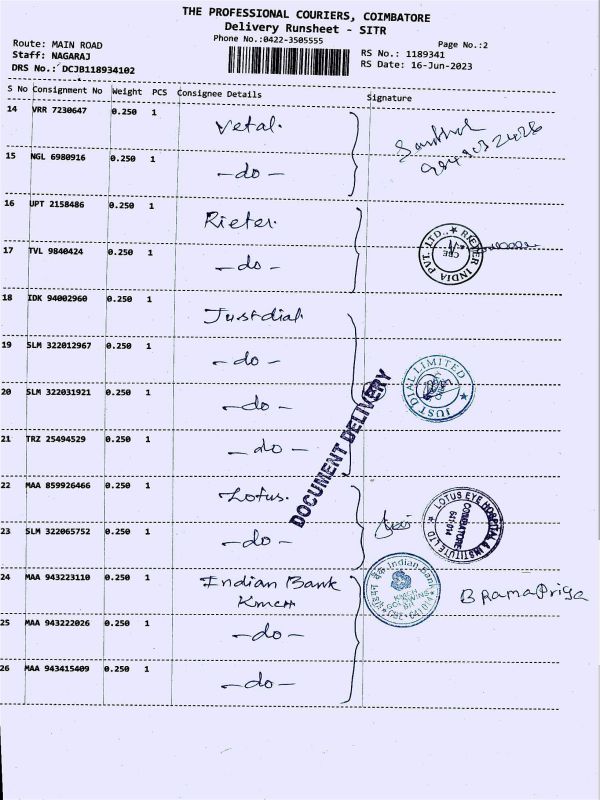 THE PROFESSIONAL COURIERS, COIMBATORE
Delivery Runsheet - SITR
Phone No.:0422-3505555
Page No.:2
Route: MAIN ROAD
Staff: NAGARAJ
DRS No.: DCJB118934102
RS No.: 1189341
RS Date: 16-Jun-2023
S No Consignment No Weight PCS Consignee Details Signature
14 VRR 7230647 0.250 1 Vetal.
15 NGL 6980916 0.250 1 -do-
16 UPT 2158486 0.250 1 Rieter.
17 TVL 9840424 0.250 1 -do-
RIETER INDIA PVT. LTD.,
CBE
18 IDK 94002960 0.250 1 Justdial
19 SLM 322012967 0.250 1 -do-
20 SLM 322031921 0.250 1 -do-
JUST DIAL LIMITED
21 TRZ 25494529 0.250 1 -do-
DOCUMENT DELIVERY
22 MAA 859926466 0.250 1 Lotus.
23 SLM 322065752 0.250 1 -do-
LOTUS EYE HOSPITAL & INSTITUTE LTD
COIMBATORE
641 014
24 MAA 943223110 0.250 1 Indian Bank
KMCH
इंडियन बैंक Indian Bank
KMCH
GOLDWINS
BR
CBE-641 014
B RamaPriya
25 MAA 943222026 0.250 1 -do-
26 MAA 943415409 0.250 1 -do-